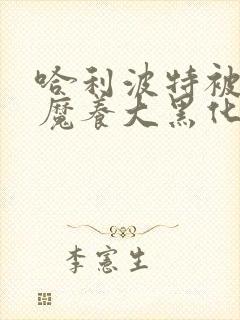 哈利波特被
魔養大黑化
李憲生